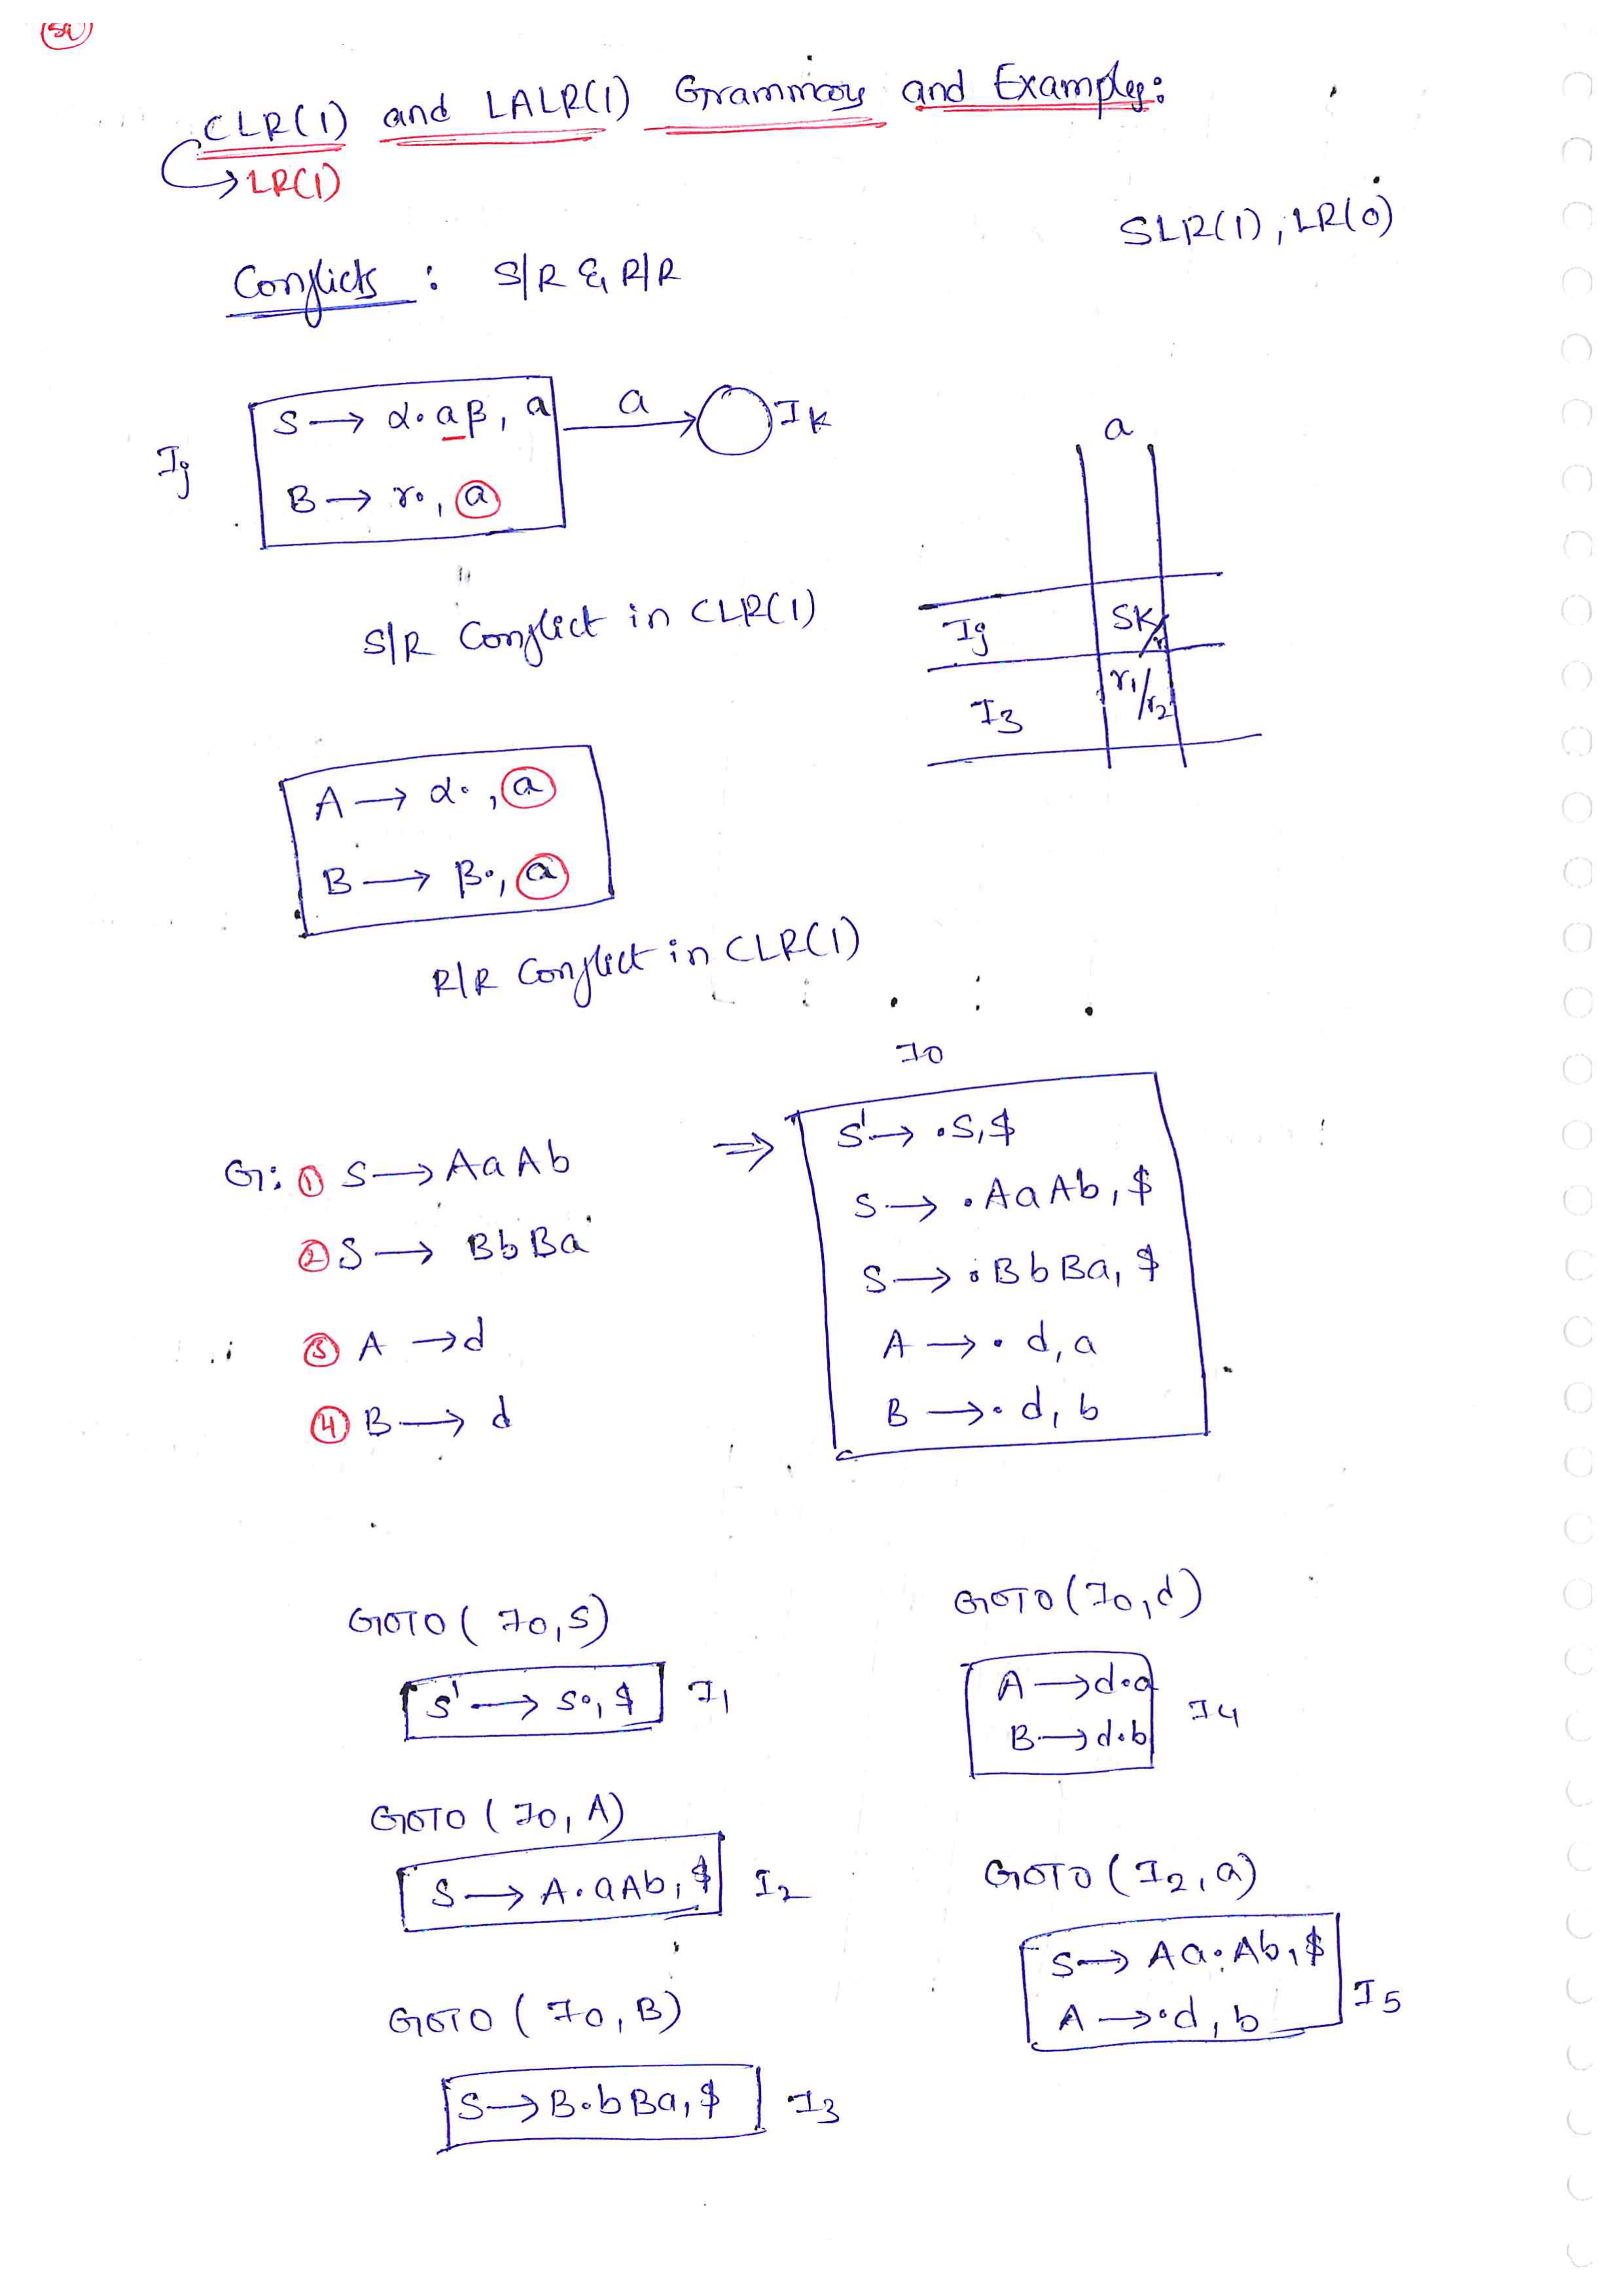 CLR(1) and LALR(1) Grammars and Examples:
LR(1)
SLR(1), LR(0)
Conflicts : S/R & R/R
S → α.aβ, a
a
Ik
Ij
B → γ., a
S/R Conflict in CLR(1)
a
Ij Sk/r
I3 r1/r2
A → α., a
B → β., a
R/R Conflict in CLR(1)
G: ① S → AaAb
② S → BbBa
③ A → d
④ B → d
⇒
I0
S' → .S, $
S → .AaAb, $
S → .BbBa, $
A → .d, a
B → .d, b
GOTO (I0, S)
S' → S., $ I1
GOTO (I0, A)
S → A.aAb, $ I2
GOTO (I0, B)
S → B.bBa, $ I3
GOTO (I0, d)
A → d.a
B → d.b
I4
GOTO (I2, a)
S → Aa.Ab, $
A → .d, b
I5